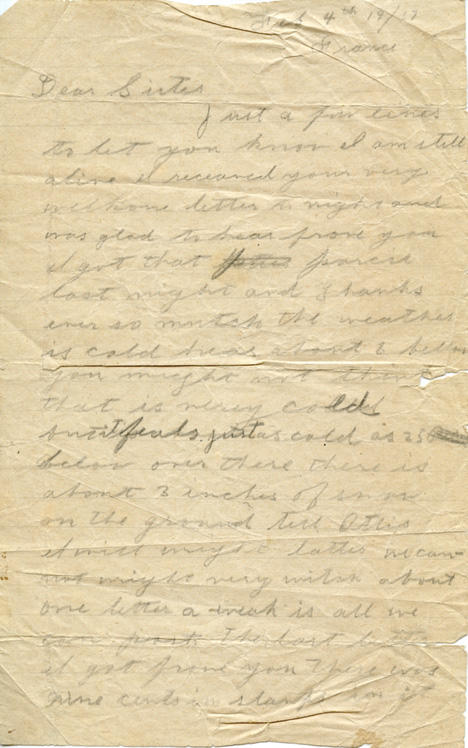 Feb 4th 19/17
France
Dear Sister
Just a few lines
to let you know I am still
alive I receaved your very
wellcome letter to night and
was glad to hear frome you
I got that parcie
last night and thanks
ever so mutch the weather
is cold hear about 2 below
you might not think
that is very cold
but it feals just as cold as 25
below over there there is
about 3 inches of snow
on the ground tell Ottis
I will wright latter we can
not wright very mutch about
one letter a weak is all we
can post the last letter
I got frome you there was
nine cents in stamps on it